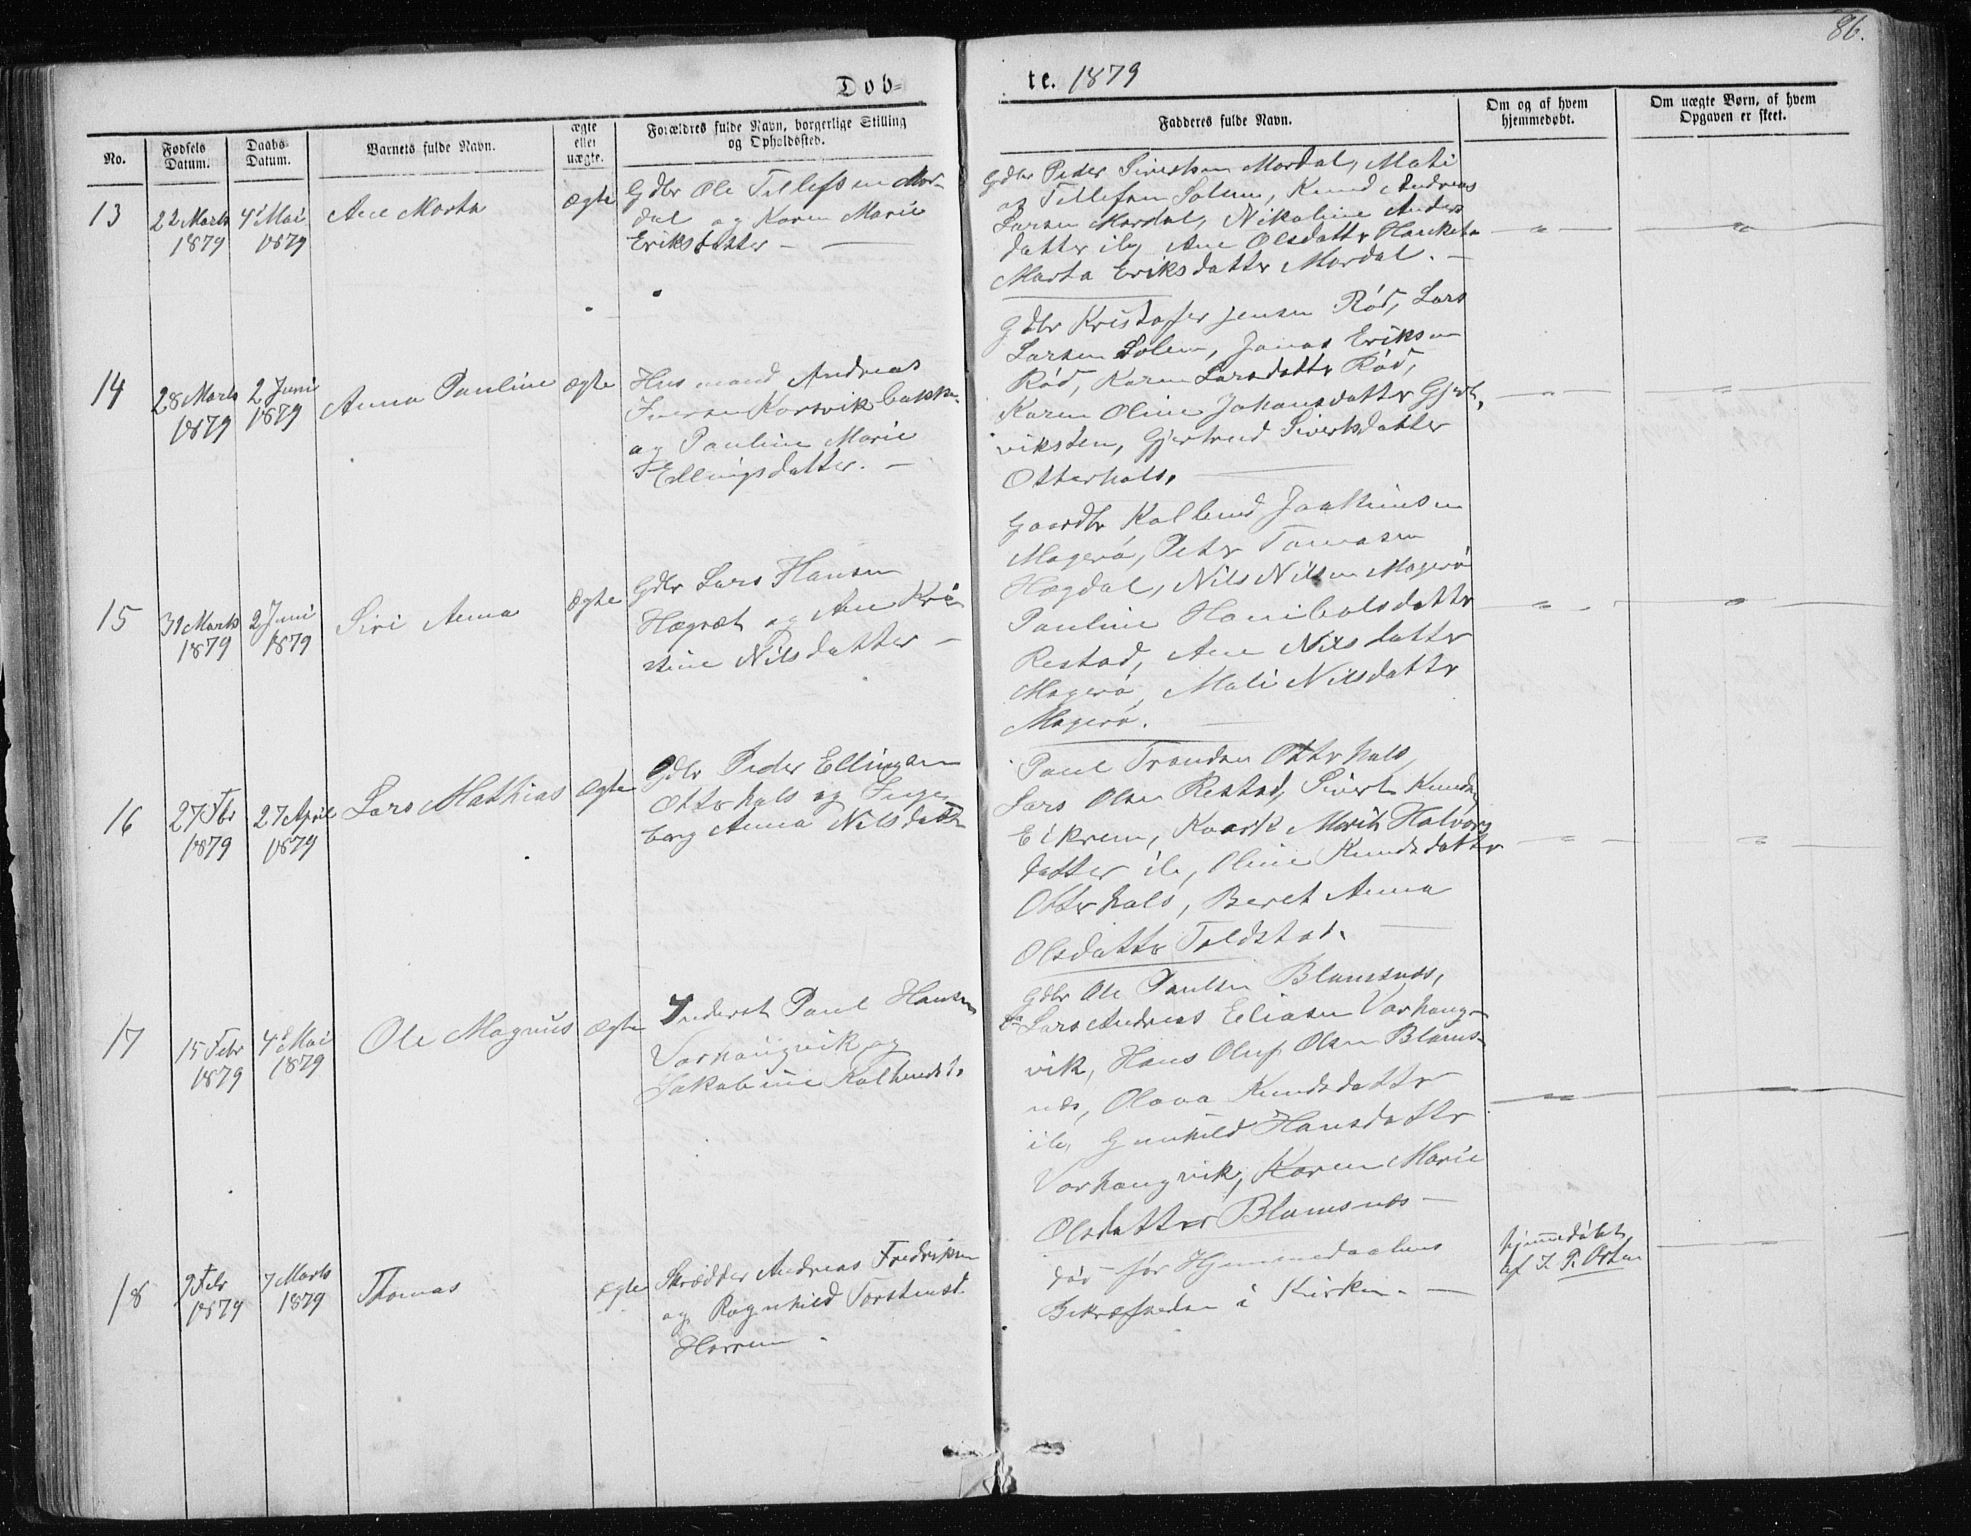 86.
Døb-
te. 1879
No.
Fødsels
Datum.
Daabs
Datum.
Barnets fulde Navn.
ægte
eller
uægte.
Forældres fulde Navn, borgerlige Stilling
og Opholdssted.
Fadderes fulde Navn.
Om og af hvem
hjemmedøbt.
Om uægte Børn, af hvem
Opgaven er skeet.
13
22 Marts
1879
4de Mai
1879
Ane Marta
Ægte
Gdbr Ole Tellefsen Mor-
dal og Karen Marie
Eriksdatter —
Gdbr Peder Sivertsen Mordal, Mati
as Tellefsen Solem, Knud Andreas
Larsen Mordal, Nikoline Anders
datter ib, Ane Olsdattr
Marta Eriksdattr Mordal. —
14
28 Marts
1879
2 Juni
1879
Anna Pauline
Ægte
Husmand Andreas
Iversen Korsvik
og Pauline Marie
Ellingsdatter. —
Gdbr Kristofer Jensen Rød, Lars
Larsen Solem, Jonas Eriksen
Rød, Karen Larsdattr Rød,
Karen Oline Johansdatter
viksten, Gjertrud Sivertsdatter
Otterhals.
15
31 Marts
1879
2 Juni
1879
Siri Anna
Ægte
Gdbr Lars Hansen
Hægvæt og Ane Kri
stine Nilsdatter —
Gaardbr Kolbend Joakimsen
Magerø, Peter Tomasen
Hægdal, Nils Nilsen Magerø
Pauline Hanibalsdattr
Restad, Ane Nilsdattr
Magerø, Mali Nilsdattr
Magerø.
16
27 Fbr
1879
27 April
1879
Lars Mathias
Ægte
Gdbr Peder Ellingsen
Otterhals og Inge
borg Anna Nilsdattr
Paul Trondsen Otterhals
Lars Olsen Restad, Sivert Knudsen
Eikrem, Marit Halvors
datter ib, Oline Knudsdatter
Otterhals, Beret Anna
Olsdattr Toldstad.
17
15 Febr
1879
4de Mai
1879
Ole Magnus
Ægte
Inderst Paul Hansen
Varhaugvik og
Jakobine Kolbendsd.
Gdbr Ole Paulsen Blamsnæs,
Lars Andreas Eliasen Varhaug-
vik, Hans Oluf Olsen Blams-
næs, Olava Knudsdattr
ib, Gunhild Hansdattr
Varhaugvik, Karen Marie
Olsdatter Blamsnæs —
18
9 Febr
1879
7 Marts
1879
Thomas
Ægte
Skrædder Andreas Fredriksen
og Ragnhild Torstensd.
Harrem
død før Hjemmedaabens
Bekræftelse i Kirken. —
hjemmedøbt
af I. P. Orten